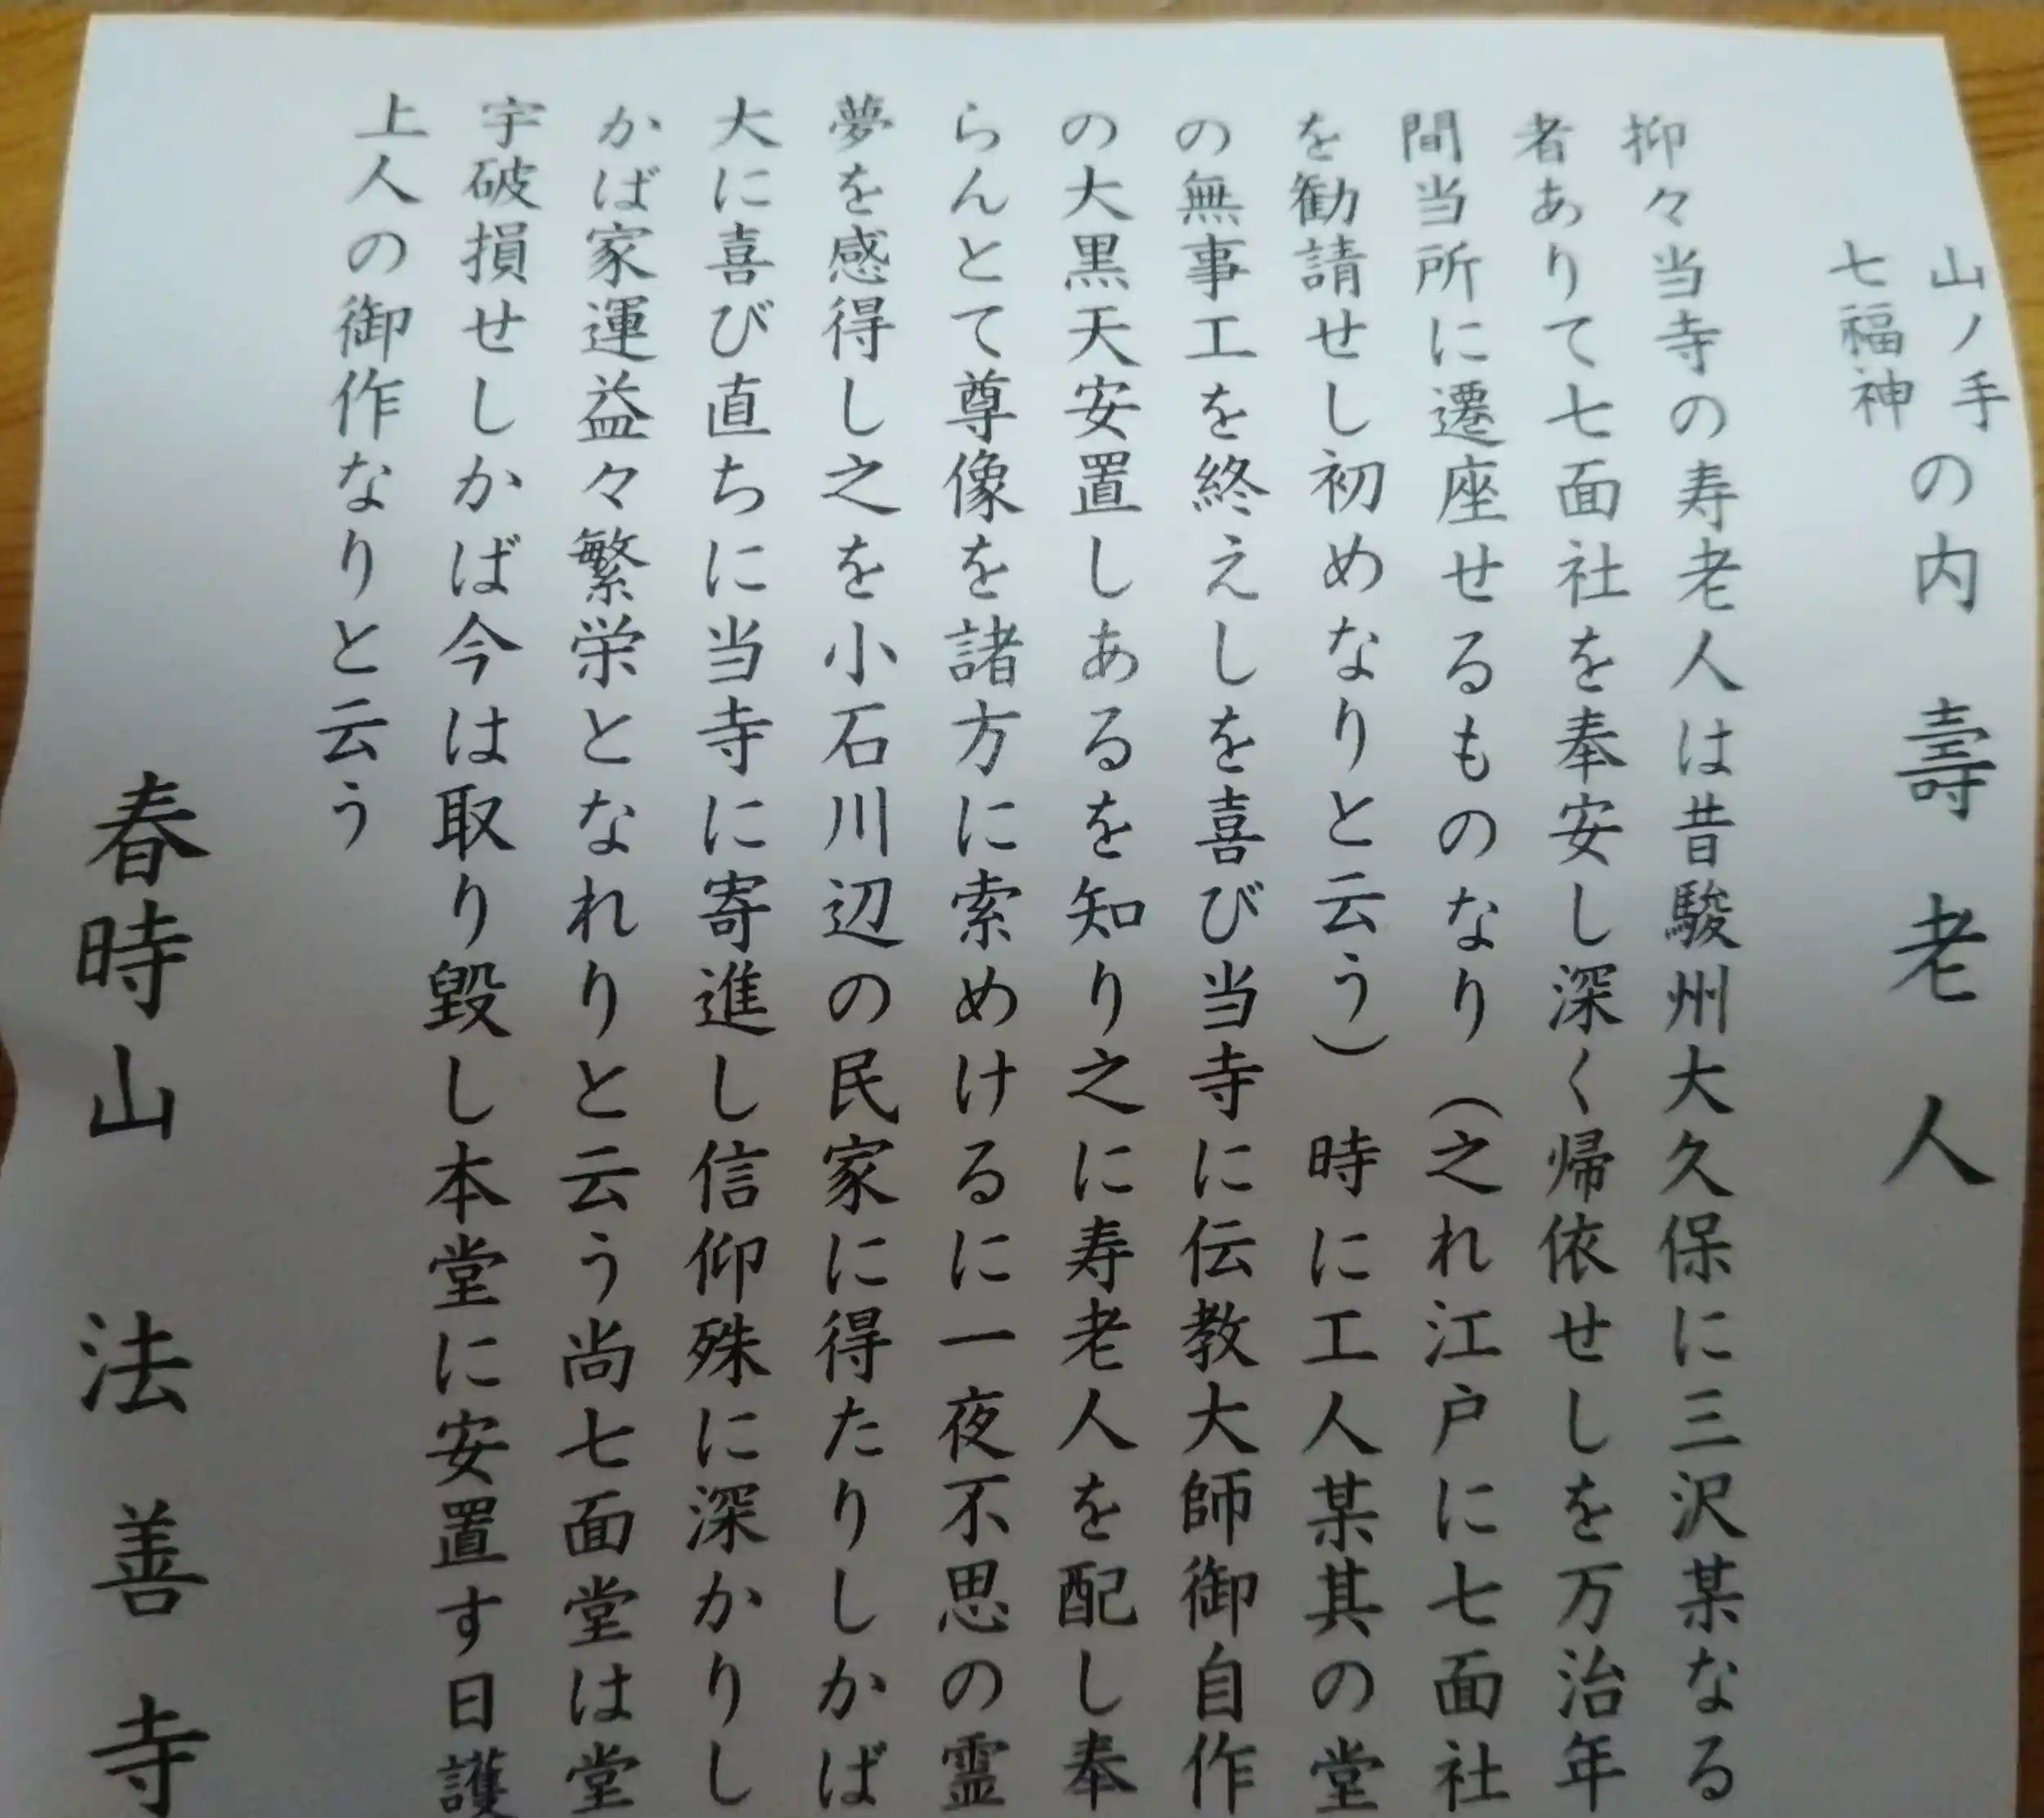 山ノ手
七福神の内　壽老人
抑々当寺の寿老人は昔駿州大久保に三沢某なる
者ありて七面社を奉安し深く帰依せしを万治年
間当所に遷座せるものなり（之れ江戸に七面社
を勧請せし初めなりと云う）時に工人某其の堂
の無事工を終えしを喜び当寺に伝教大師御自作
の大黒天安置しあるを知り之に寿老人を配し奉
らんとて尊像を諸方に索めけるに一夜不思の霊
夢を感得し之を小石川辺の民家に得たりしかば
大に喜び直ちに当寺に寄進し信仰殊に深かりし
かば家運益々繁栄となれりと云う尚七面堂は堂
宇破損せしかば今は取り毀し本堂に安置す日護
上人の御作なりと云う
春時山　法善寺